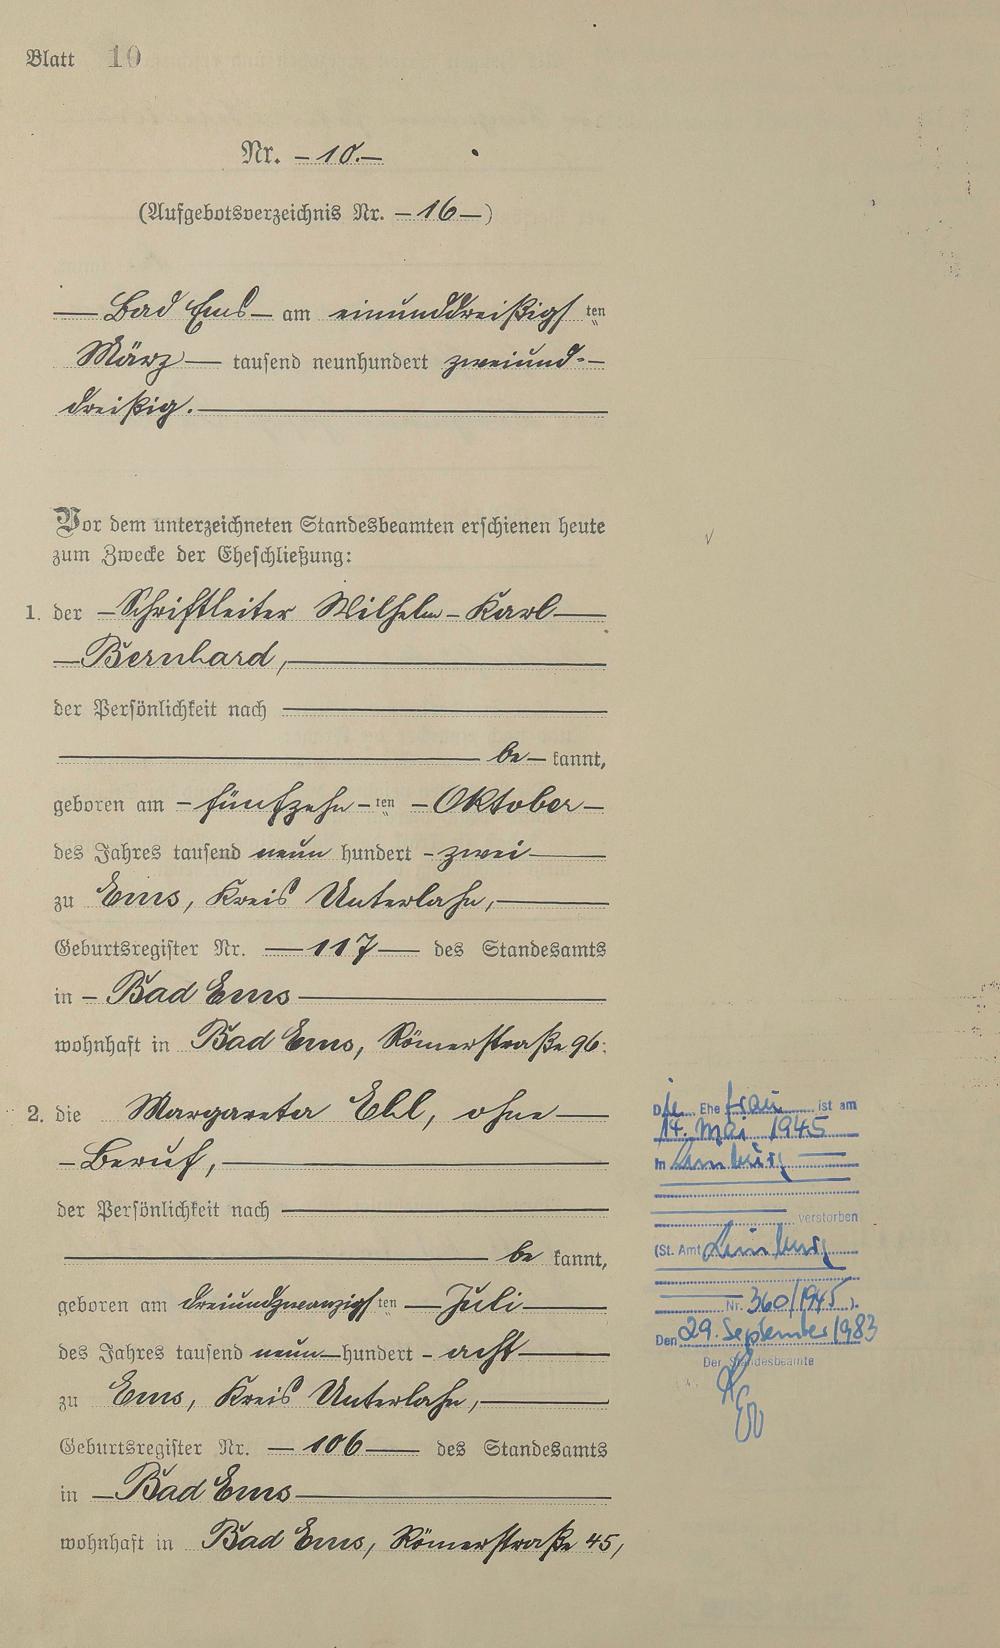 Blatt 10
Nr. – 10. –
(Aufgebotsverzeichnis Nr. – 16 –)
— Bad Ems – am einunddreißigs ten
März — tausend neunhundert zweiund- –
dreißig. —
Vor dem unterzeichneten Standesbeamten erschienen heute
zum Zwecke der Eheschließung:
1. der – Schriftleiter Wilhelm – Karl —
– Bernhard, —
der Persönlichkeit nach —
— be – kannt,
geboren am – fünfzehn – ten – Oktober –
des Jahres tausend neun hundert – zwei —
zu Ems, Kreis Unterlahn, —
Geburtsregister Nr. — 117 — des Standesamts
in – Bad Ems —
wohnhaft in Bad Ems, Römerstraße 96.
2. die Margareta Ehl, ohne —
– Beruf, —
der Persönlichkeit nach —
— be kannt,
geboren am dreiundzwanzigs ten — Juli —
des Jahres tausend neun – hundert – acht —
zu Ems, Kreis Unterlahn, —
Geburtsregister Nr. – 106 — des Standesamts
in – Bad Ems —
wohnhaft in Bad Ems, Römerstraße 45,
Die Ehefrau ist am
14. Mai 1945
in Limburg —
— verstorben
(St. Amt Limburg
— Nr. 360/1945 ).
Den 29. September 1983
Der Standesbeamte